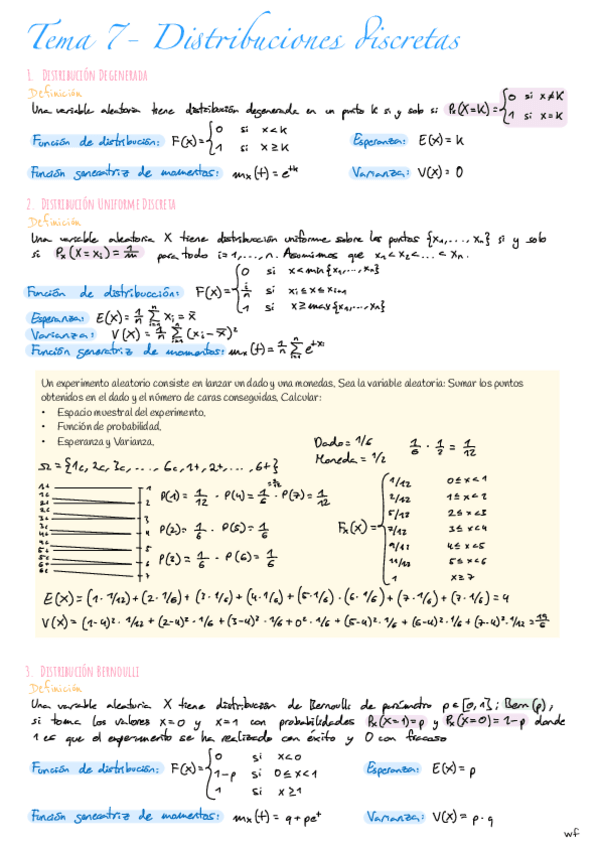 Tema 7- Distribuciones discretas
1. Distribución Degenerada
Definición
Una variable aleatoria tiene distribución degenerada en un punto k si y solo si Px(X=K)= {0 si x≠K
1 si x=K
Función de distribución: F(x)= {0 si x<k
1 si x≥k
Esperanza: E(x)=k
Función generatriz de momentos: mx(t)=e^tk
Varianza: V(x)=0
2. Distribución Uniforme Discreta
Definición
Una variable aleatoria X tiene distribución uniforme sobre los puntos {x1,..., xn} si y solo
si Px(X=xi)=1/n para todo i=1,...,n. Asumimos que x1<x2<...<xn.
Función de distribucción: F(x)= {0 si x<min{x1,...,xn}
i/n si xi≤x≤xi+1
1 si x≥max{x1,...,xn}
Esperanza: E(x)=1/n Σ xi=x̄
Varianza: V(x)=1/n Σ (xi-x̄)²
Función generatriz de momentos: mx(t)=1/n Σ e^txi
Un experimento aleatorio consiste en lanzar un dado y una monedas. Sea la variable aleatoria: Sumar los puntos
obtenidos en el dado y el número de caras conseguidas. Calcular:
• Espacio muestral del experimento.
• Función de probabilidad.
• Esperanza y Varianza.
Dado=1/6
Moneda=1/2
1/6 · 1/2 = 1/12
Ω={1c, 2c, 3c, ..., 6c, 1+, 2+, ..., 6+}
P(1)=1/12 · P(4)=1/6 · P(7)=1/12
P(2)=1/6 · P(5)=1/6
P(3)=1/6 · P(6)=1/6
Fx(x)= {1/12 0≤x<1
2/12 1≤x<2
5/12 2≤x<3
7/12 3≤x<4
9/12 4≤x<5
11/12 5≤x<6
1 x≥7
E(x)=(1·1/12)+(2·1/6)+(3·1/6)+(4·1/6)+(5·1/6)·(6·1/6)+(7·1/6)+(7·1/6)=4
V(x)=(1-4)²·1/12+(2-4)²·1/6+(3-4)²·1/6+0²·1/6+(5-4)²·1/6+(6-4)²·1/6+(7-4)²·1/12=19/6
3. Distribución Bernoulli
Definición
Una variable aleatoria X tiene distribución de Bernoulli de parámetro p∈[0,1]; Bern(p),
si toma los valores x=0 y x=1 con probabilidades Px(X=1)=p y Px(X=0)=1-p donde
1 es que el experimento se ha realizado con éxito y 0 con fracaso
Función de distribución: F(x)= {0 si x<0
1-p si 0≤x<1
1 si x≥1
Esperanza: E(x)=p
Función generatriz de momentos: mx(t)=q+pe^t
Varianza: V(x)=p·q
wf